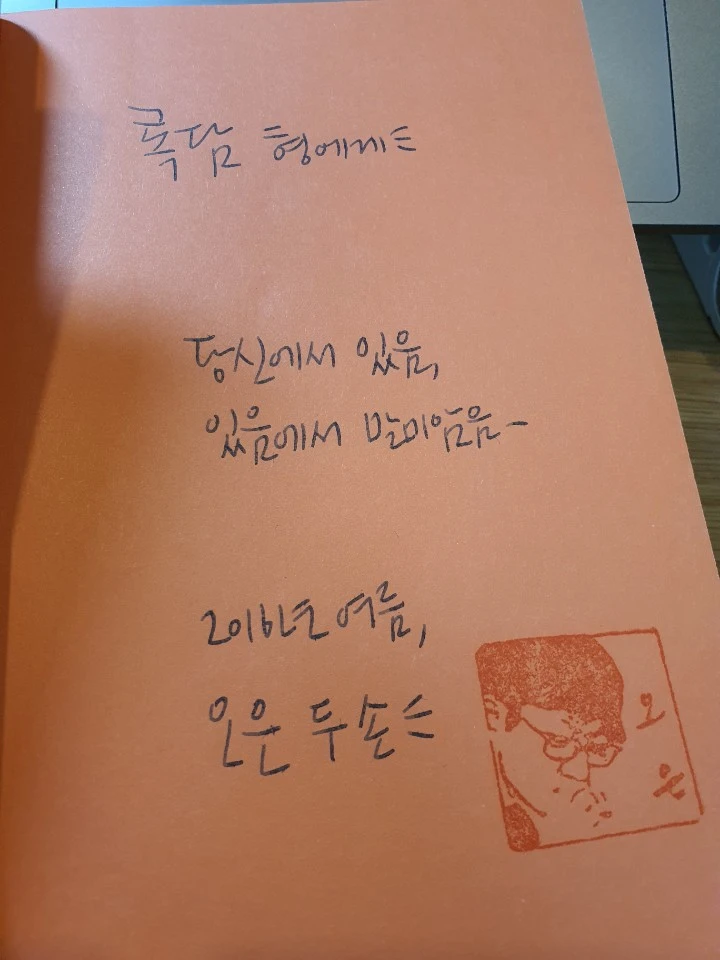 록담 형에게
당신에서 있음,
있음에서 말미암음-
2016년 여름,
오은 두 손
오
은